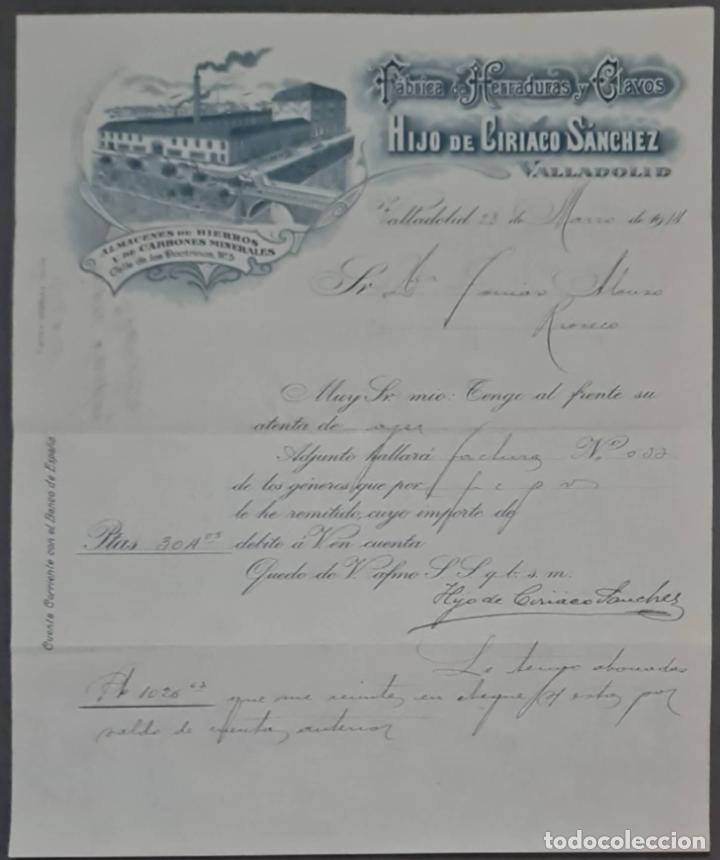 Fábrica de Herraduras y Clavos
Hijo de Ciriaco Sánchez
Valladolid
Almacenes de Hierros
y de Carbones Minerales
Calle de las Doctrinos, Nº 5
Valladolid 23 de Marzo de 1914
Sr. Dn Alonso
Rioseco
Muy Sr. mio: Tengo al frente su
atenta de ayer
Adjunto hallará factura N.º 
de los géneros que por f c
le he remitido, cuyo importe de
Ptas 304 debito á V. en cuenta
Quedo de V. afmo. S. S. q. b. s. m.
Hijo de Ciriaco Sanchez
Le tengo abonadas
1026 que me remite en cheque por
saldo de cuenta anterior
Cuenta Corriente con el Banco de España
todocoleccion.net